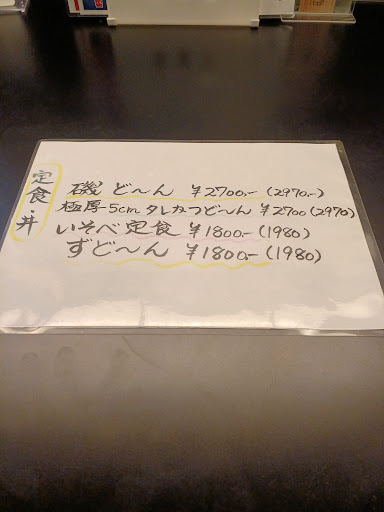 定食・丼
磯 ど〜ん ¥2700.- (2970.-)
極厚-5cm タレカツど〜ん ¥2700 (2970)
いそべ定食 ¥1800.- (1980)
ずど〜ん ¥1800.- (1980)